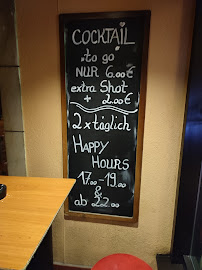 COCKTAIL
"to go"
NUR 6.00€
extra Shot
+ 2.00€
2x täglich
HAPPY
HOURS
17.00-19.00
&
ab 22.00